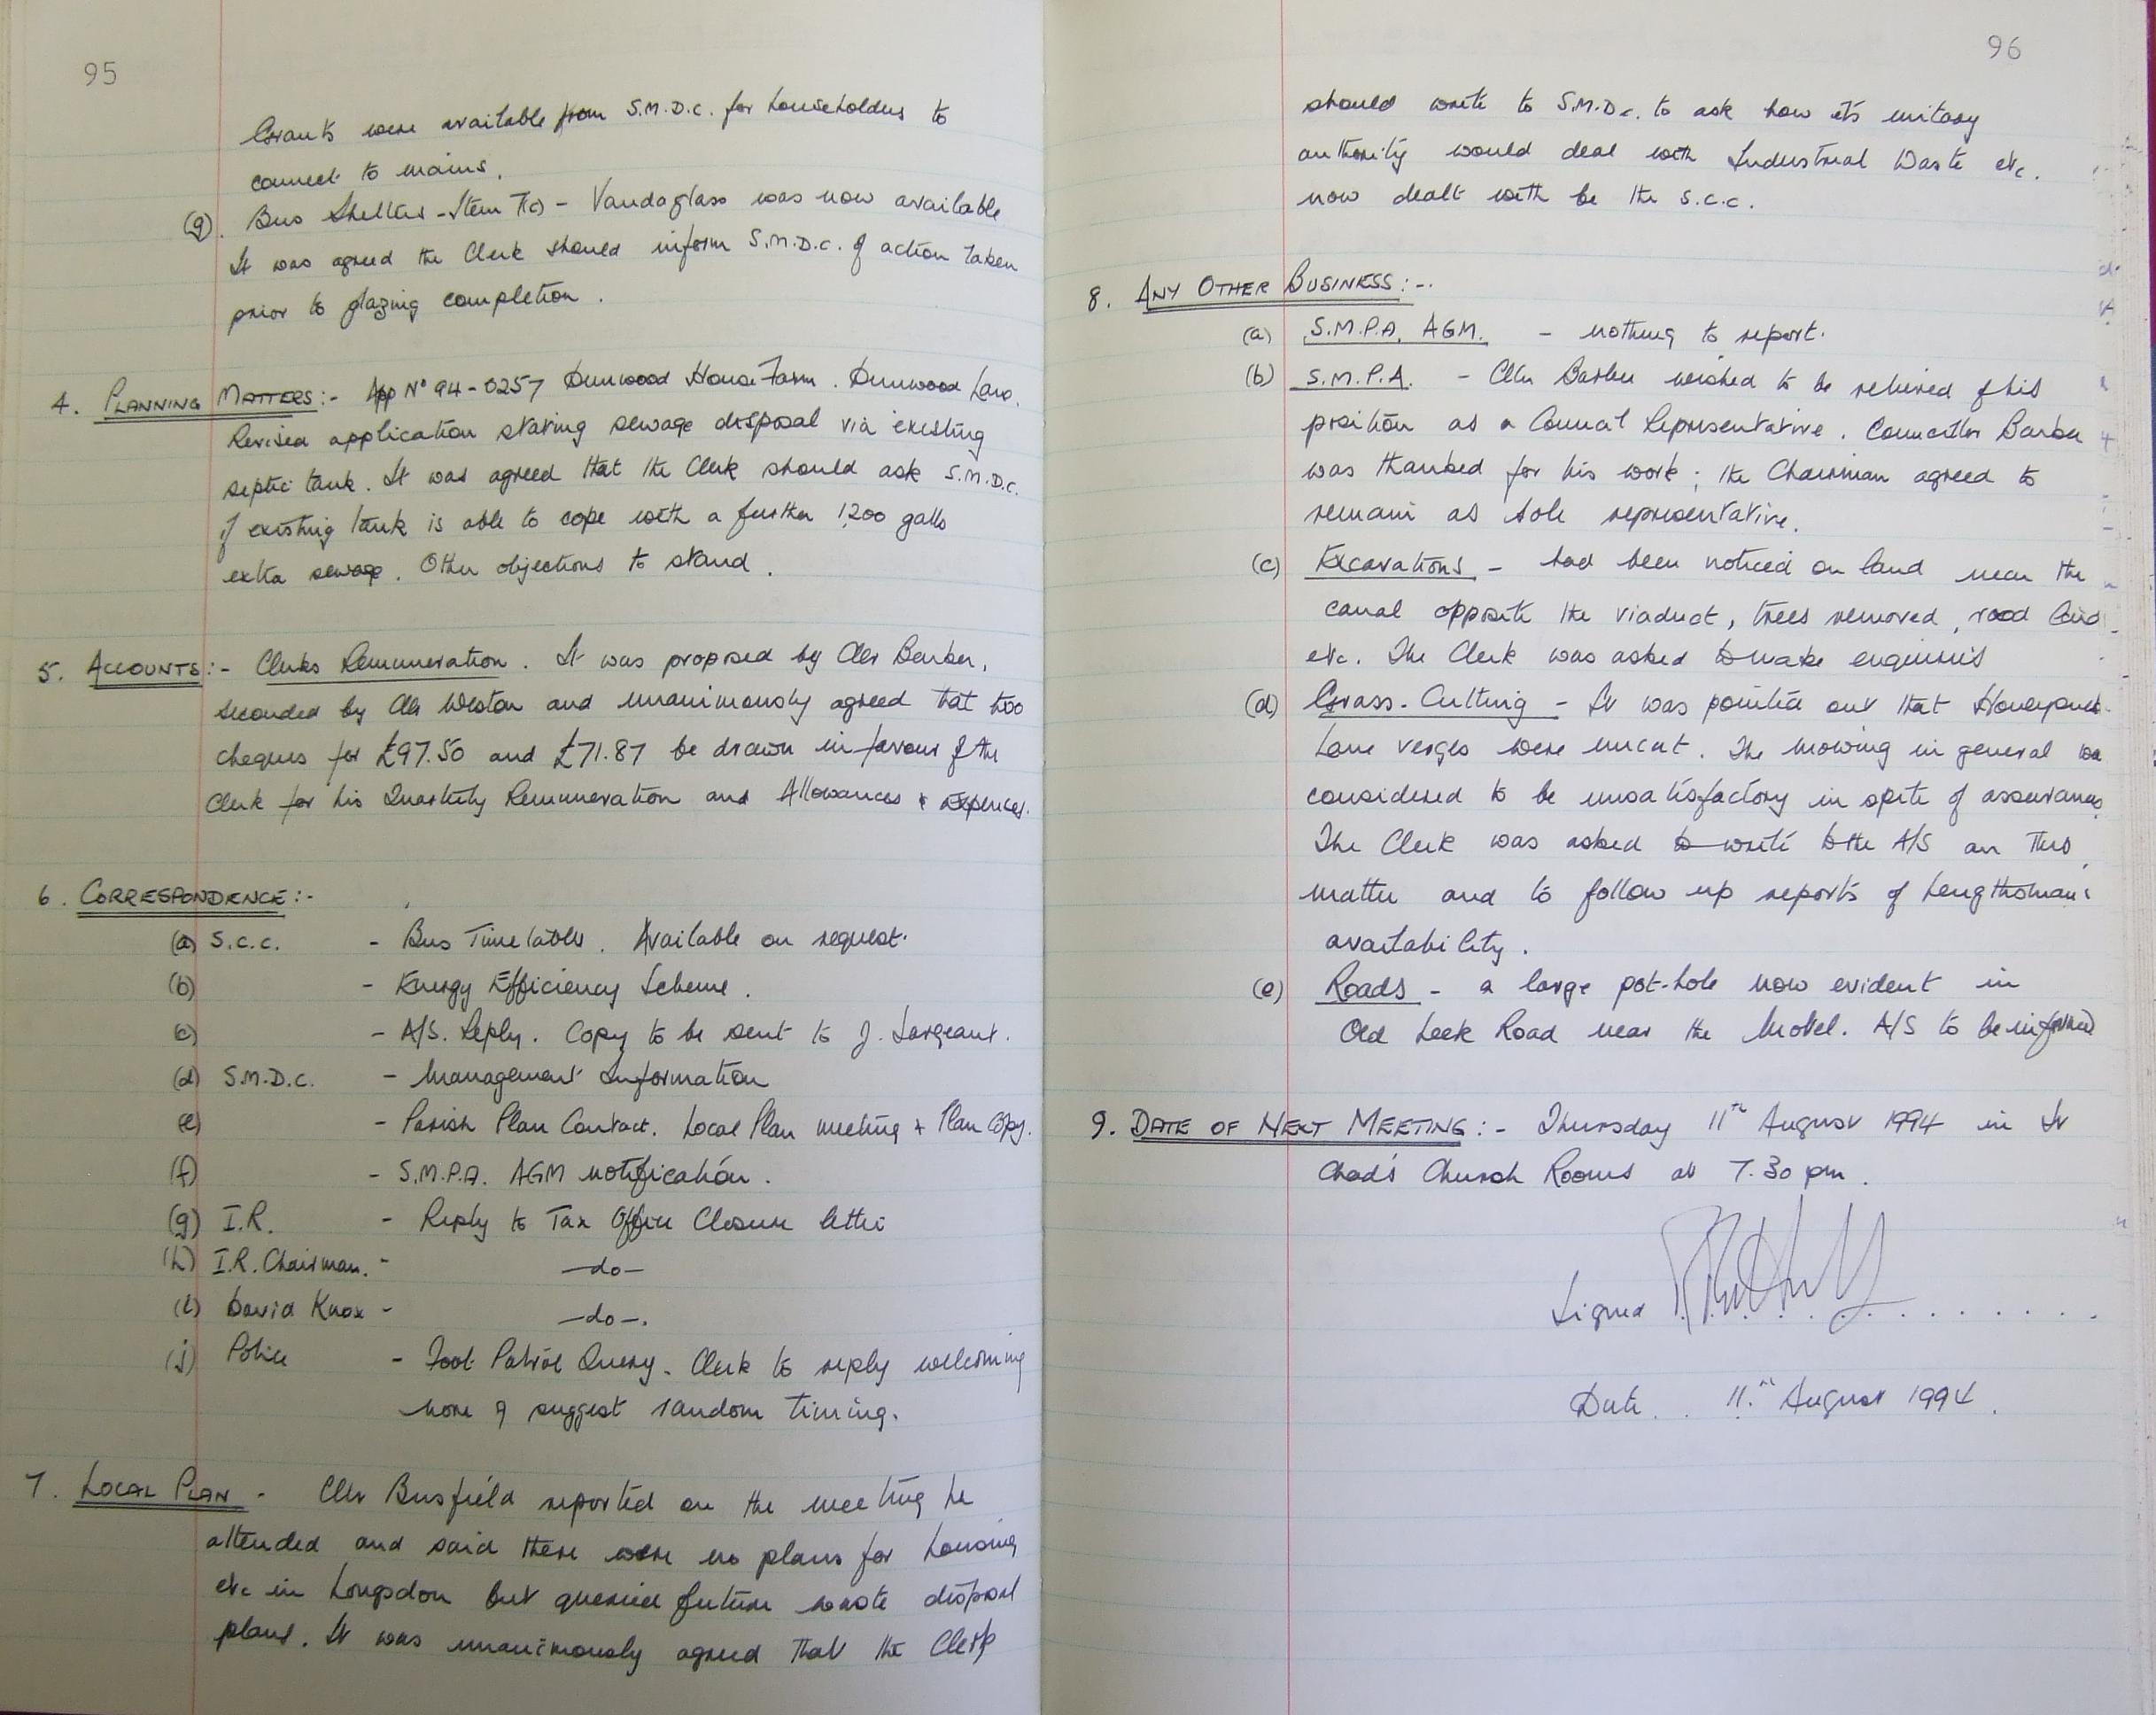 95
Grants were available from S.M.D.C. for householders to
connect to mains.
(g). Bus Shelter - Item 7(c) - Vandaglass was now available
It was agreed the Clerk should inform S.M.D.C. of action taken
prior to glazing completion.
4. PLANNING MATTERS:- App No 94-0257 Dunwood House Farm. Dunwood Lane.
Revised application stating sewage disposal via existing
septic tank. It was agreed that the Clerk should ask S.M.D.C.
if existing tank is able to cope with a further 1,200 galls
extra sewage. Other objections to stand.
5. ACCOUNTS:- Clerks Remuneration. It was proposed by Cllr Barber,
seconded by Cllr Weston and unanimously agreed that two
cheques for £97.50 and £71.87 be drawn in favour of the
Clerk for his Quarterly Remuneration and Allowances & expenses.
6. CORRESPONDENCE:-
(a) S.C.C. - Bus Timetables. Available on request.
(b) - Energy Efficiency Scheme.
(c) - A/S. Reply. Copy to be sent to J. Sargeant.
(d) S.M.D.C. - Management Information
(e) - Parish Plan Contact. Local Plan meeting + Plan Copy.
(f) - S.M.P.A. AGM notification.
(g) I.R. - Reply to Tax Office Closure letter
(h) I.R. Chairman. - -do-
(i) David Knox - -do-.
(j) Police - Foot Patrol Query. Clerk to reply welcoming
more & suggest random timing.
7. LOCAL PLAN - Cllr Busfield reported on the meeting he
attended and said there were no plans for housing
etc in Longsdon but queried future waste disposal
plans. It was unanimously agreed that the Clerk
96
should write to S.M.D.C. to ask how its unitary
authority would deal with Industrial Waste etc.
now dealt with be the S.C.C.
8. ANY OTHER BUSINESS:-.
(a) S.M.P.A. AGM. - nothing to report.
(b) S.M.P.A. - Cllr Barber wished to be relieved of his
position as a Council Representative. Councillor Barber
was thanked for his work; the Chairman agreed to
remain as sole representative.
(c) Excavations - had been noticed on land near the
canal opposite the viaduct, trees removed, road laid
etc. The Clerk was asked to make enquiries
(d) Grass-Cutting - It was pointed out that Honeysuckle
Lane verges were uncut. The mowing in general was
considered to be unsatisfactory in spite of assurances.
The Clerk was asked to write to the A/S on this
matter and to follow up reports of Lengthsman's
availability.
(e) Roads - a large pot-hole now evident in
Old Leek Road near the Motel. A/S to be informed
9. DATE OF NEXT MEETING:- Thursday 11th August 1994 in St
Chad's Church Rooms at 7.30 pm.
Signed
Date 11th August 1994.